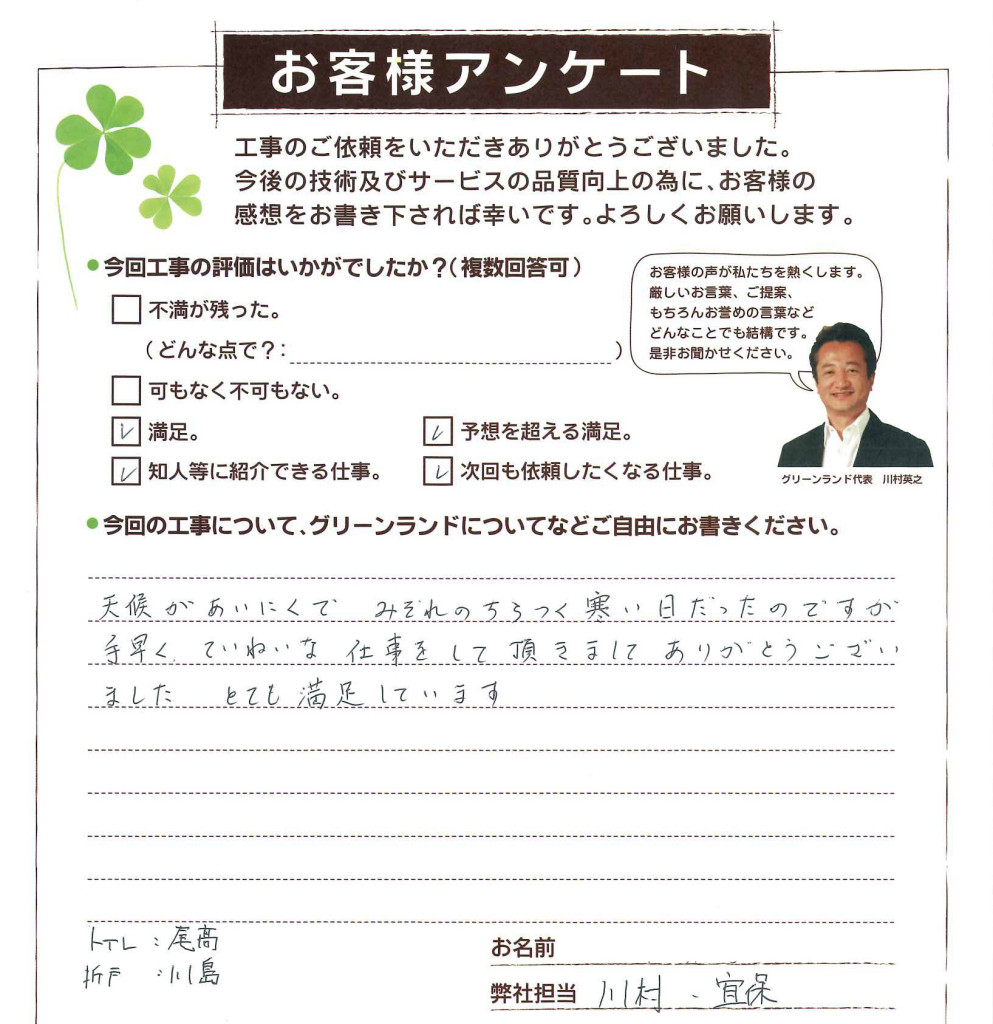 お客様アンケート
工事のご依頼をいただきありがとうございました。
今後の技術及びサービスの品質向上の為に、お客様の
感想をお書き下されば幸いです。よろしくお願いします。
●今回工事の評価はいかがでしたか？（複数回答可）
不満が残った。
（どんな点で？：　）
可もなく不可もない。
レ 満足。
レ 予想を超える満足。
レ 知人等に紹介できる仕事。
レ 次回も依頼したくなる仕事。
お客様の声が私たちを熱くします。
厳しいお言葉、ご提案、
もちろんお誉めの言葉など
どんなことでも結構です。
是非お聞かせください。
グリーンランド代表　川村英之
●今回の工事について、グリーンランドについてなどご自由にお書きください。
天候があいにくで　みぞれのちらつく寒い日だったのですが
手早く、ていねいな 仕事をして頂きまして ありがとうござい
ました　とても満足しています
トイレ：尾高
折戸：川島
お名前
弊社担当 川村、宜保